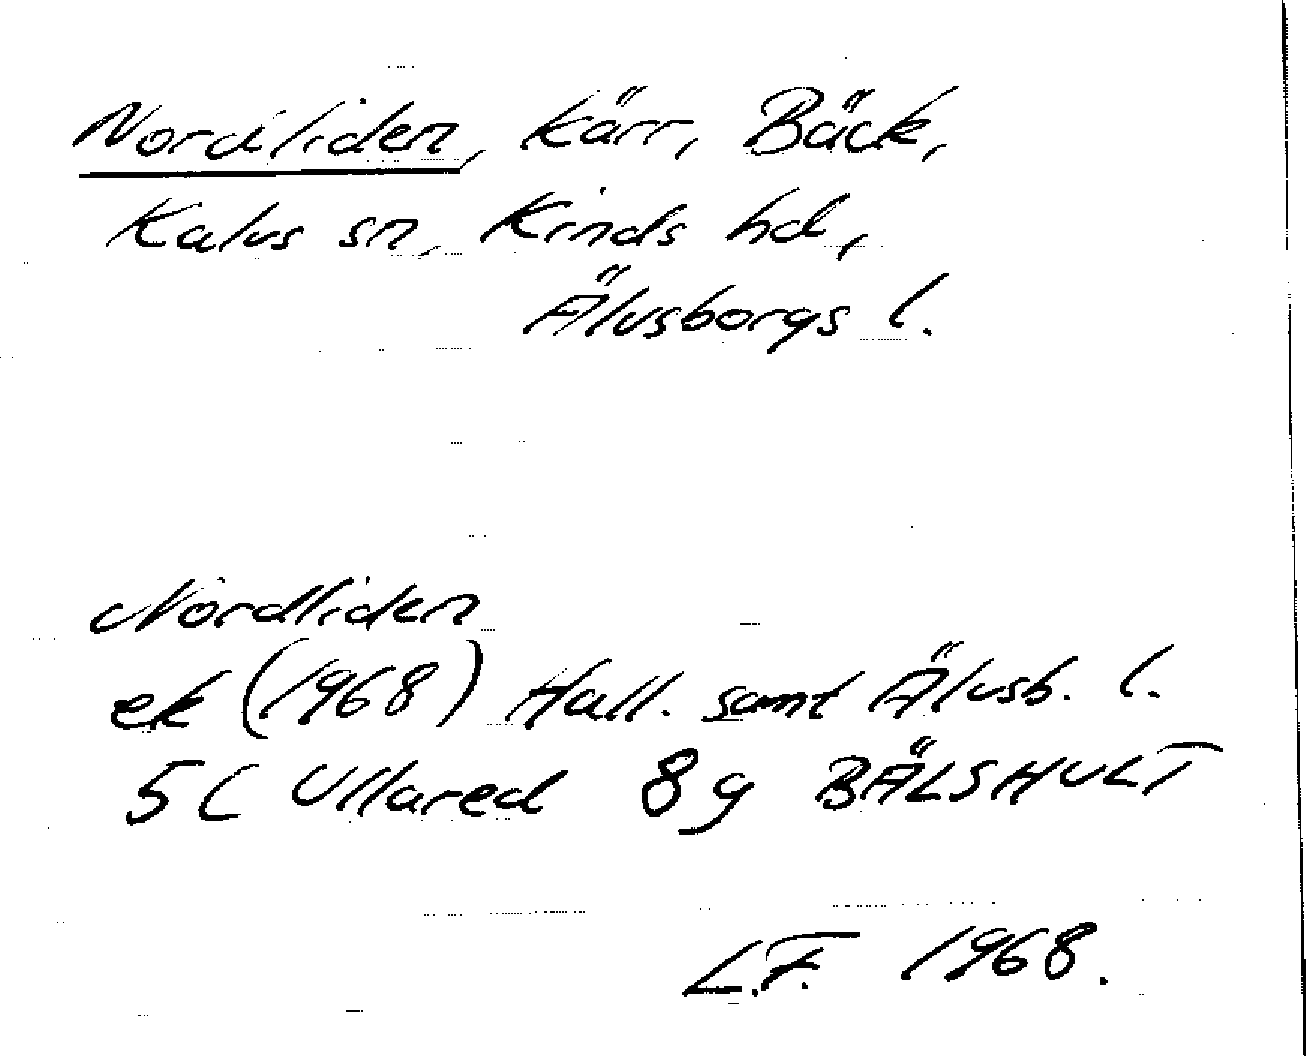 Nordliden, Kärr, Bäck,
Kalvs sn, Kinds hd,
Älvsborgs l.
Nordliden
ek (1968) Hall. samt Älvsb. l.
5C Ullared 8g BÄLSHULT
L.F. 1968.